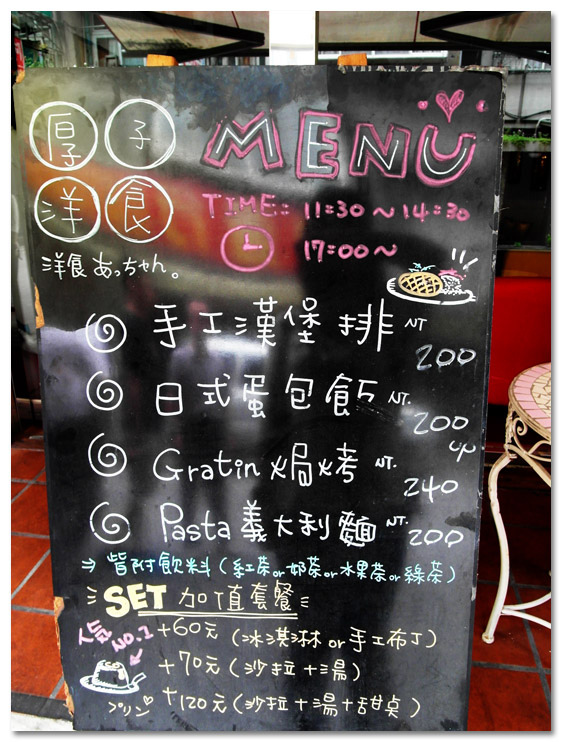 厚子
洋食
洋食あっちゃん。
MENU
TIME:: 11:30～14:30
17:00～
手工漢堡排 NT 200
日式蛋包飯 NT. 200 up
Gratin 焗烤 NT. 240
Pasta 義大利麵 NT. 200
⇒ 皆附飲料(紅茶or奶茶or水果茶or綠茶)
SET 加值套餐
人気 NO.1
+60元(冰淇淋 or 手工布丁)
+70元(沙拉+湯)
プリン
+120元(沙拉+湯+甜桌)